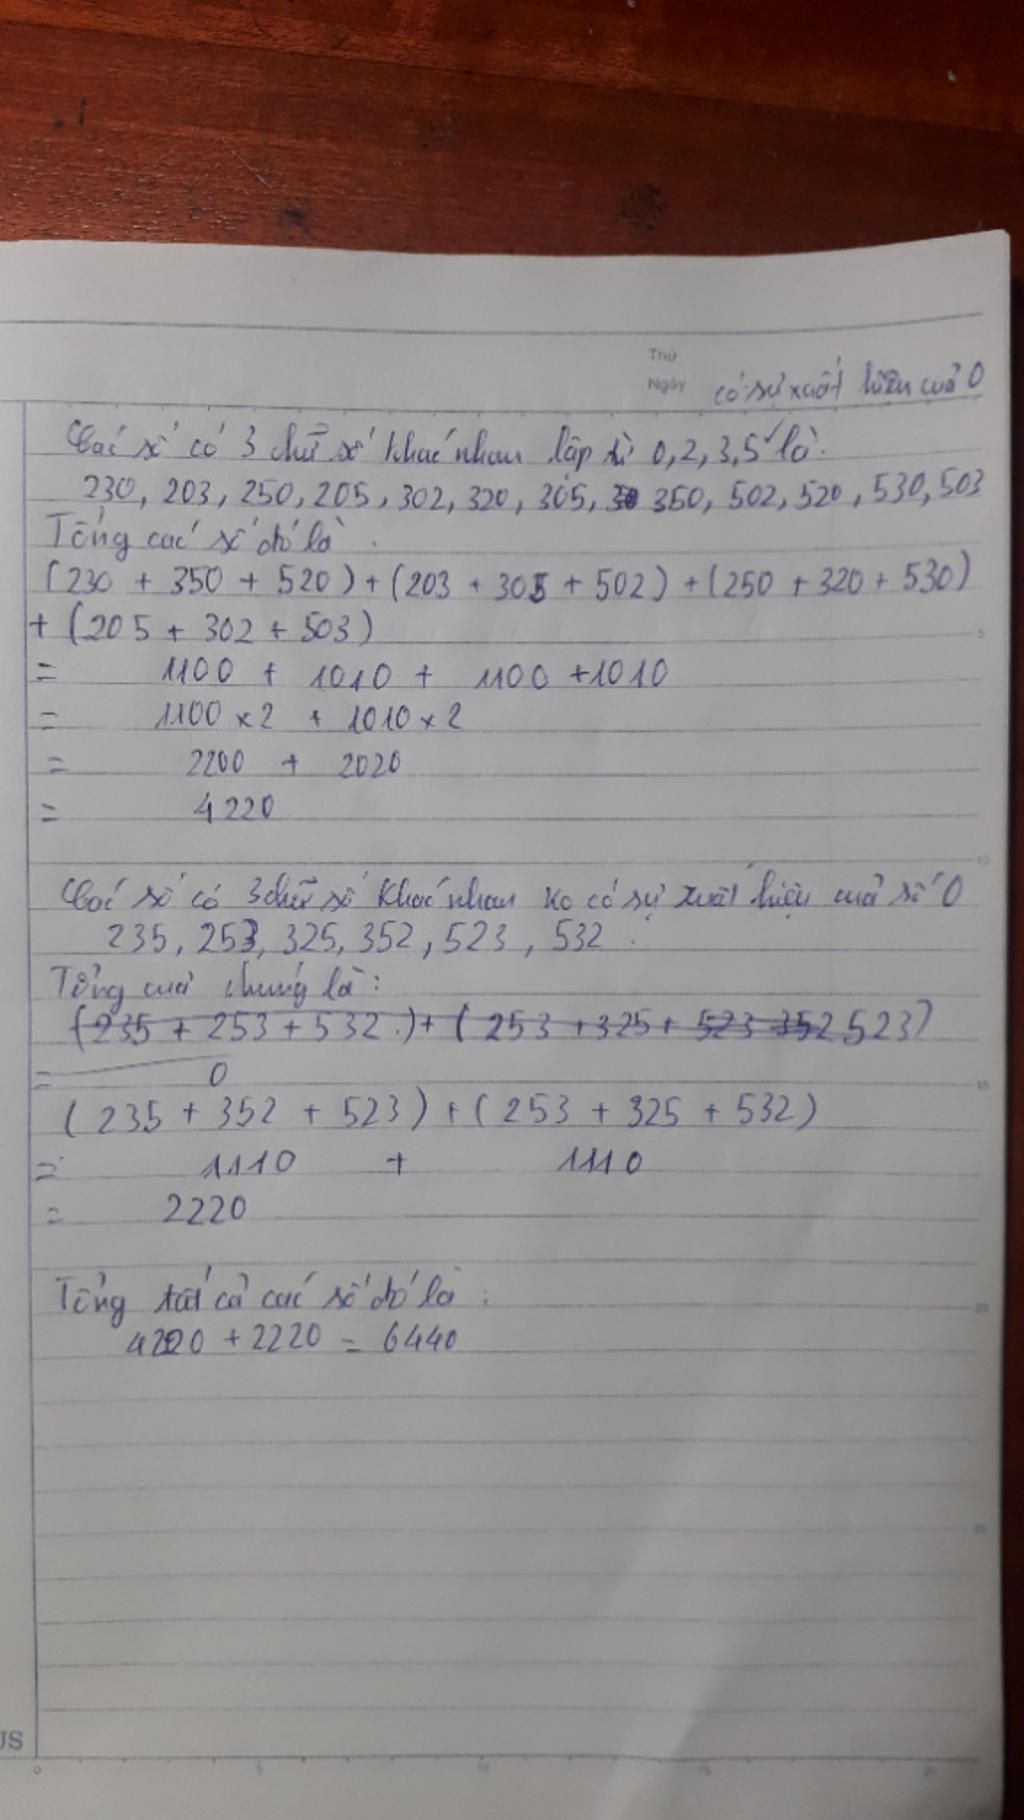 Thứ
Ngày
có sự xuất hiện của 0
Các số có 3 chữ số khác nhau lập từ 0, 2, 3, 5 là:
230, 203, 250, 205, 302, 320, 305, 350, 502, 520, 530, 503
Tổng các số đó là
(230 + 350 + 520) + (203 + 305 + 502) + (250 + 320 + 530)
+ (205 + 302 + 503)
= 1100 + 1010 + 1100 + 1010
= 1100 x 2 + 1010 x 2
= 2200 + 2020
= 4220
Các số có 3 chữ số khác nhau ko có sự xuất hiện của số 0
235, 253, 325, 352, 523, 532.
Tổng của chúng là:
(235 + 253 + 532) + (253 + 325 + 523 352 523)
= 0
(235 + 352 + 523) + (253 + 325 + 532)
= 1110 + 1110
= 2220
Tổng tất cả các số đó là:
4220 + 2220 = 6440
5
10
15
20
25
US
0 5 10 15 20